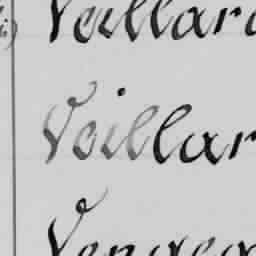 Veillard
Veillar
Vengeo